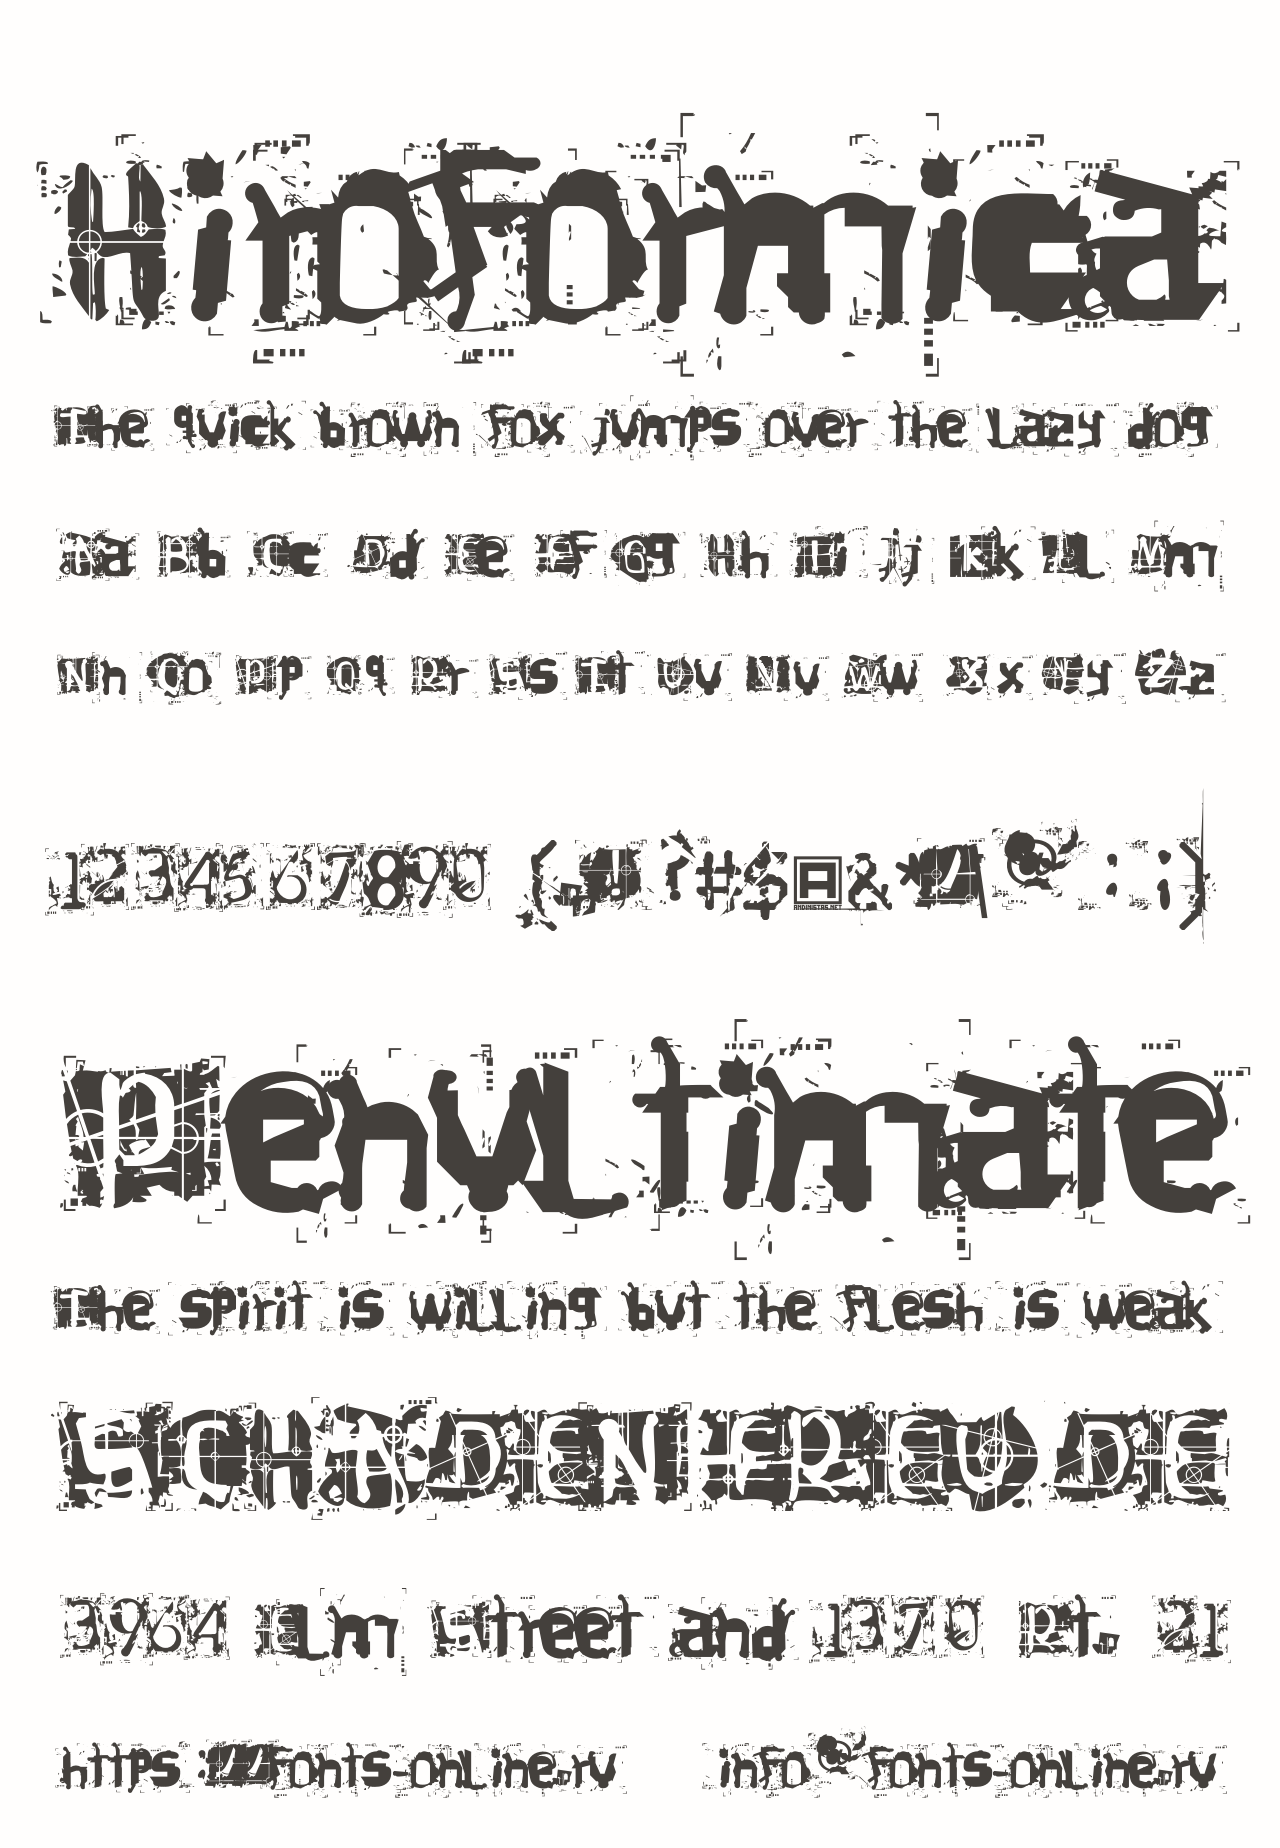 Hiroformica
The quick brown fox jumps over the lazy dog
Aa Bb Cc Dd Ee Ff Gg Hh Ii Jj Kk Ll Mm
Nn Oo Pp Qq Rr Ss Tt Uu Vv Ww Xx Yy Zz
1234567890 (.,!?#$ &*/ @ : ;)
ANDINISTAS.NET
Penultimate
The spirit is willing but the flesh is weak
SCHADENFREUDE
3964 Elm Street and 1370 Rt. 21
https://fonts-online.ru info@fonts-online.ru